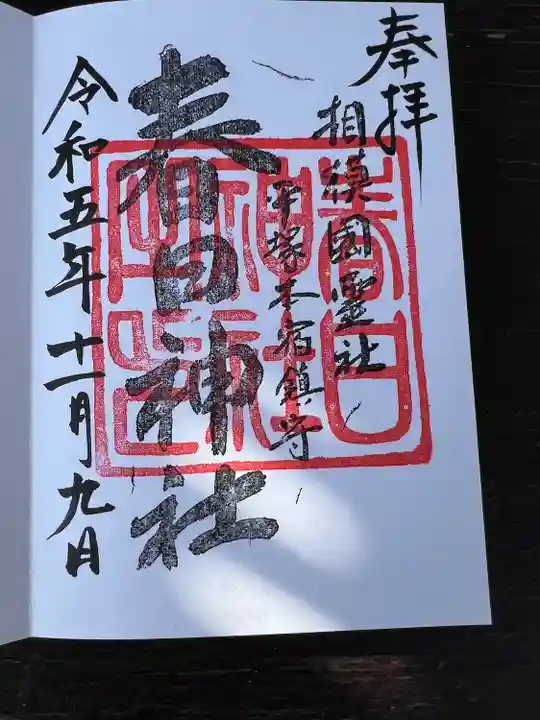 奉拝
相模國霊社
平塚本宿鎮守
春日神社
令和五年十一月九日